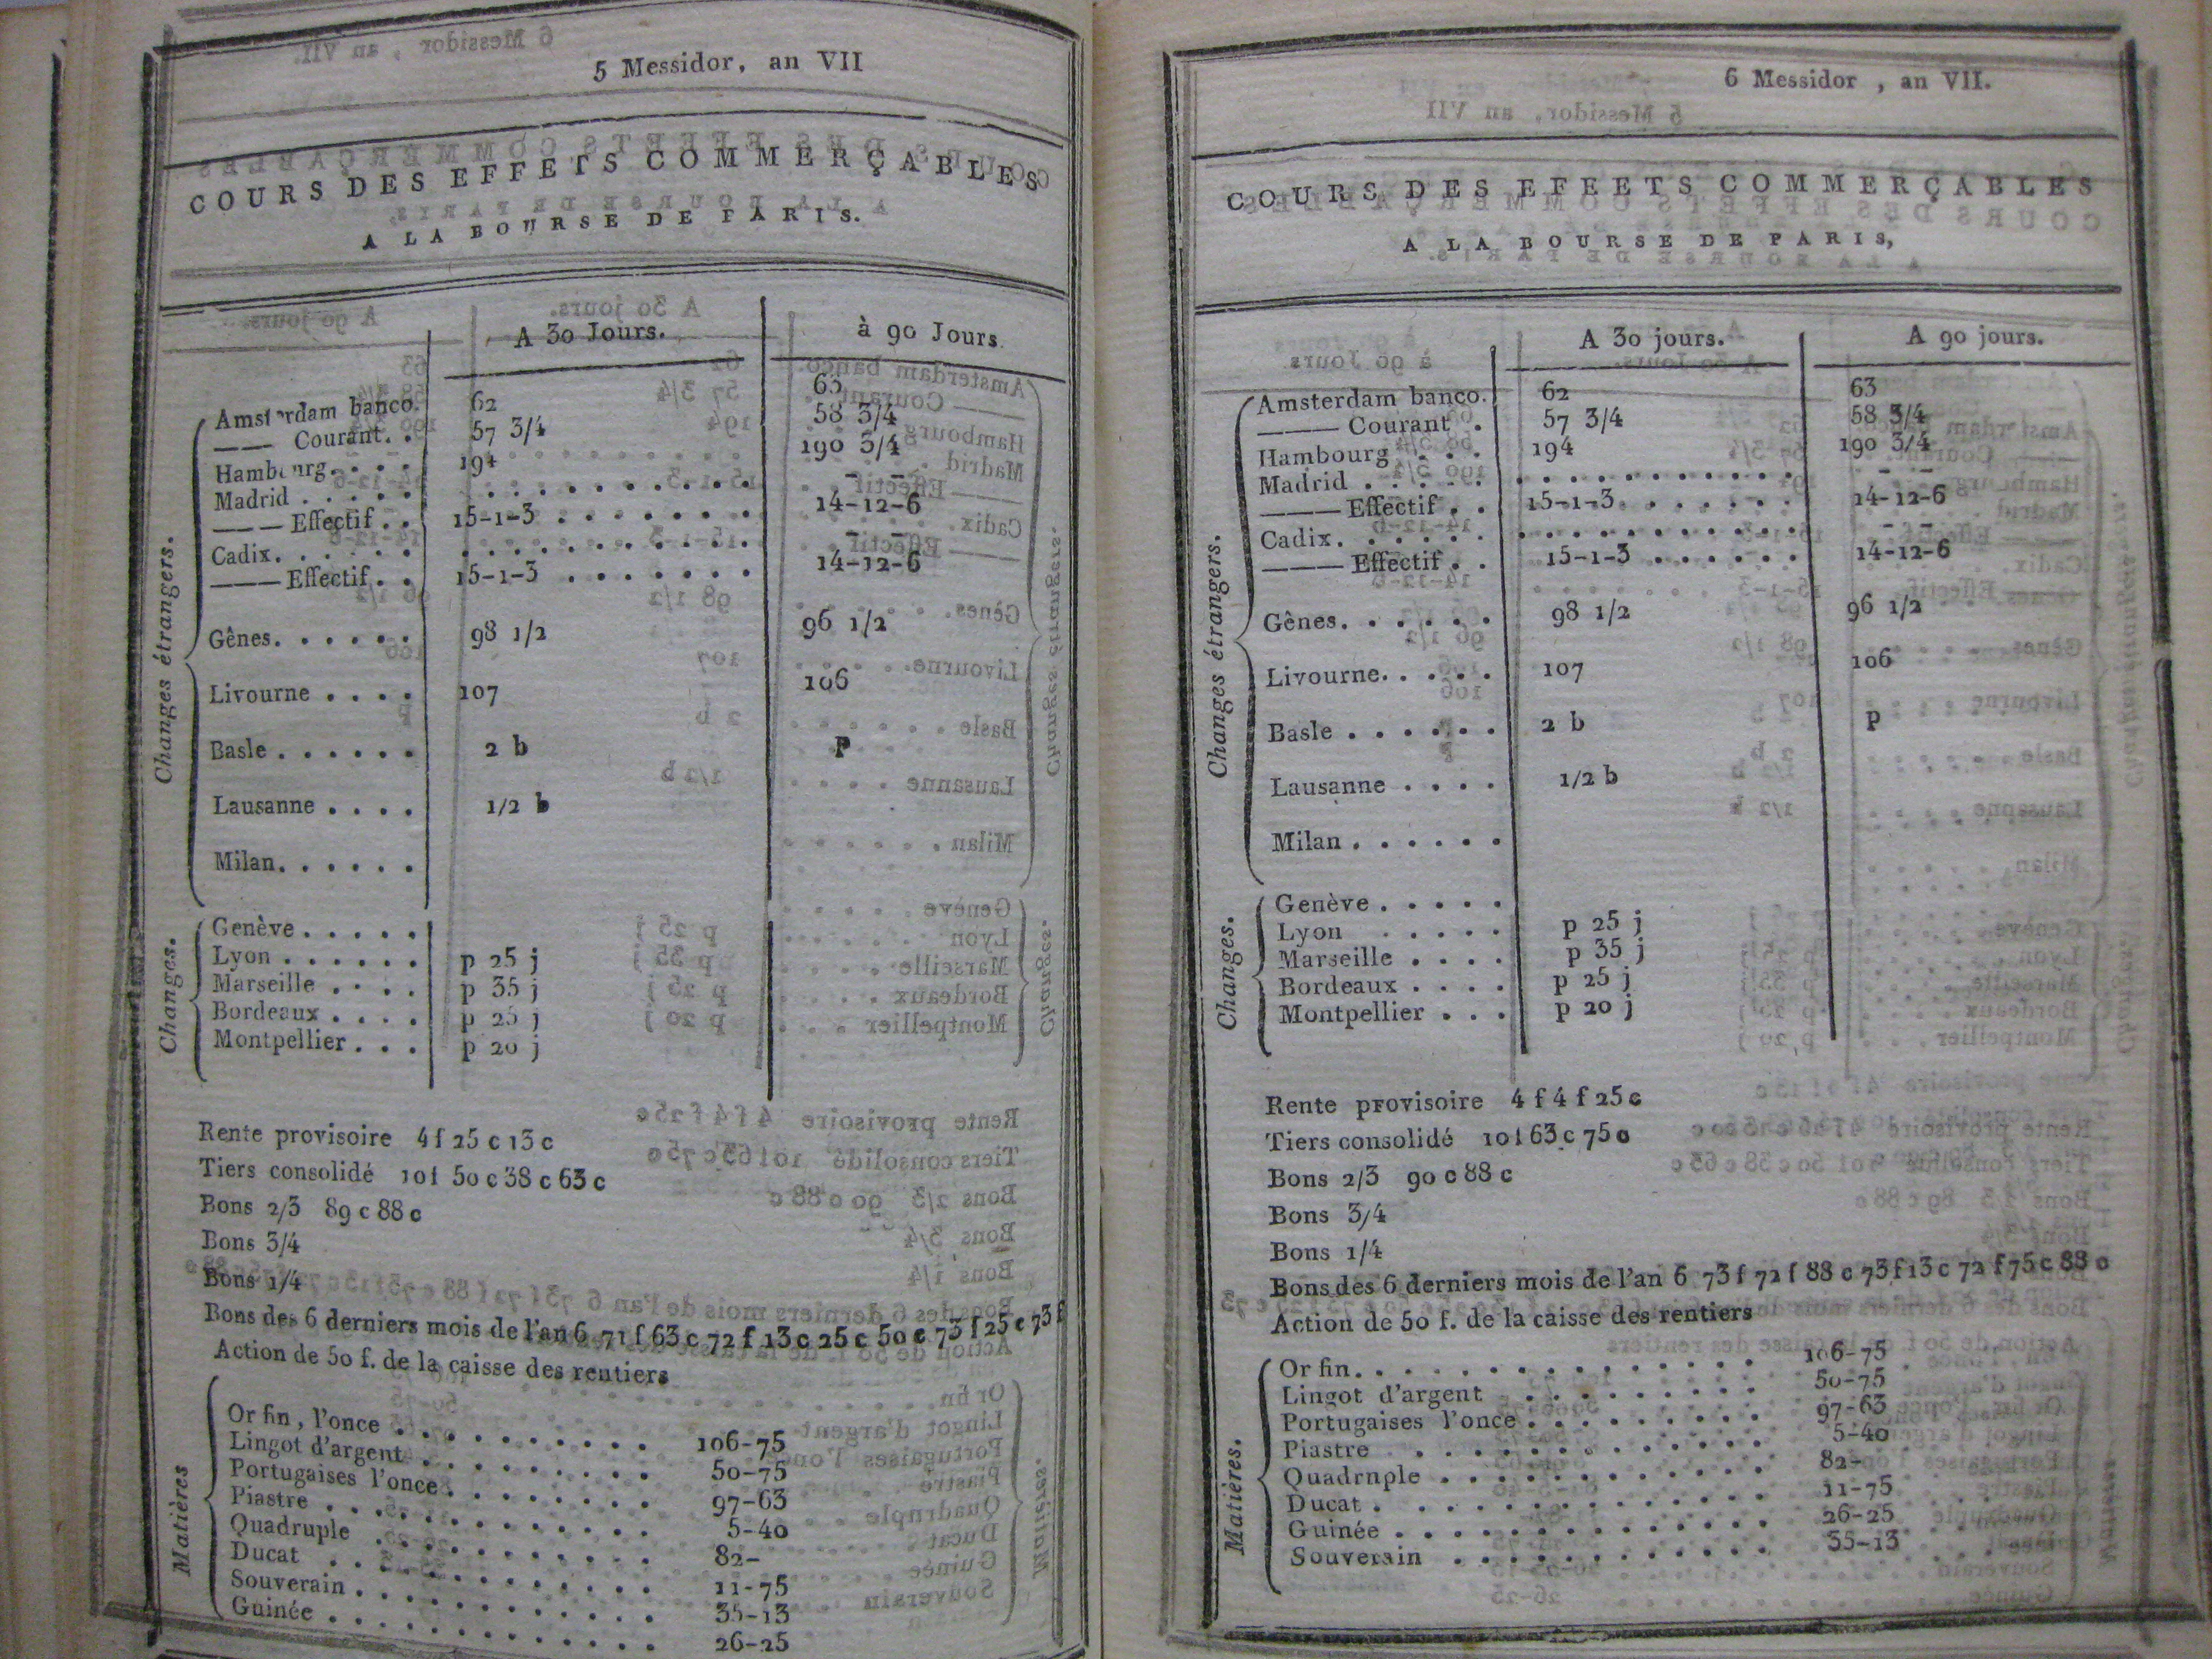 5 Messidor, an VII
COURS DES EFFETS COMMERÇABLES
A LA BOURSE DE PARIS.
A 30 Jours. à 90 Jours.
Changes étrangers.
Amsterdam banco. 62 63
——— Courant. . 57 3/4 58 3/4
Hambourg. . . . 194 190 3/4
Madrid . . . . . . . . . . . . . . . – –
——— Effectif . . 15-1-3 . . . . . . . 14-12-6
Cadix. . . . . . . . . . . . . . . . – –
——— Effectif. . 15-1-3 . . . . . . . 14-12-6
Gênes. . . . . . 98 1/2 96 1/2
Livourne . . . . 107 106
Basle . . . . . . 2 b p
Lausanne . . . . 1/2 b
Milan. . . . . .
Changes.
Genève . . . . .
Lyon . . . . . . p 25 j
Marseille . . . . p 35 j
Bordeaux . . . . p 25 j
Montpellier . . . p 20 j
Rente provisoire 4 f 25 c 13 c
Tiers consolidé 10 f 50 c 38 c 63 c
Bons 2/3 89 c 88 c
Bons 3/4
Bons 1/4
Bons des 6 derniers mois de l'an 6 71 f 63 c 72 f 13 c 25 c 50 c 73 f 25 c 73 f
Action de 50 f. de la caisse des rentiers
Matières
Or fin, l'once . . . . . . . . . . 106-75
Lingot d'argent . . . . . . . . . 50-75
Portugaises l'once . . . . . . . . 97-63
Piastre . . . . . . . . . . . . . 5-40
Quadruple . . . . . . . . . . . 82-
Ducat . . . . . . . . . . . . . 11-75
Souverain . . . . . . . . . . . . 35-13
Guinée . . . . . . . . . . . . . 26-25
6 Messidor , an VII.
COURS DES EFEETS COMMERÇABLES
A LA BOURSE DE PARIS,
A 30 jours. A 90 jours.
Changes étrangers.
Amsterdam banco. 62 63
——— Courant . 57 3/4 58 3/4
Hambourg . . . . 194 190 3/4
Madrid . . . . . . . . . . . . . . . – –
——— Effectif . . 15-1-3 . . . . . . 14-12-6
Cadix. . . . . . . . . . . . . . . . – –
——— Effectif . . 15-1-3 . . . . . . 14-12-6
Gênes. . . . . . 98 1/2 96 1/2
Livourne. . . . . 107 106
Basle . . . . . . 2 b p
Lausanne . . . . 1/2 b
Milan . . . . . .
Changes.
Genève . . . . .
Lyon . . . . . p 25 j
Marseille . . . . p 35 j
Bordeaux . . . . p 25 j
Montpellier . . . p 20 j
Rente provisoire 4 f 4 f 25 c
Tiers consolidé 10 f 63 c 75 c
Bons 2/3 90 c 88 c
Bons 3/4
Bons 1/4
Bons des 6 derniers mois de l'an 6 73 f 72 f 88 c 73 f 13 c 72 f 75 c 88 c
Action de 50 f. de la caisse des rentiers
Matières.
Or fin. . . . . . . . . . . . . 106-75
Lingot d'argent . . . . . . . . 50-75
Portugaises l'once . . . . . . . . 97-63
Piastre . . . . . . . . . . . . 5-40
Quadrnple . . . . . . . . . . . 82-
Ducat . . . . . . . . . . . . . 11-75
Guinée . . . . . . . . . . . . . 26-25
Souverain . . . . . . . . . . . 35-13